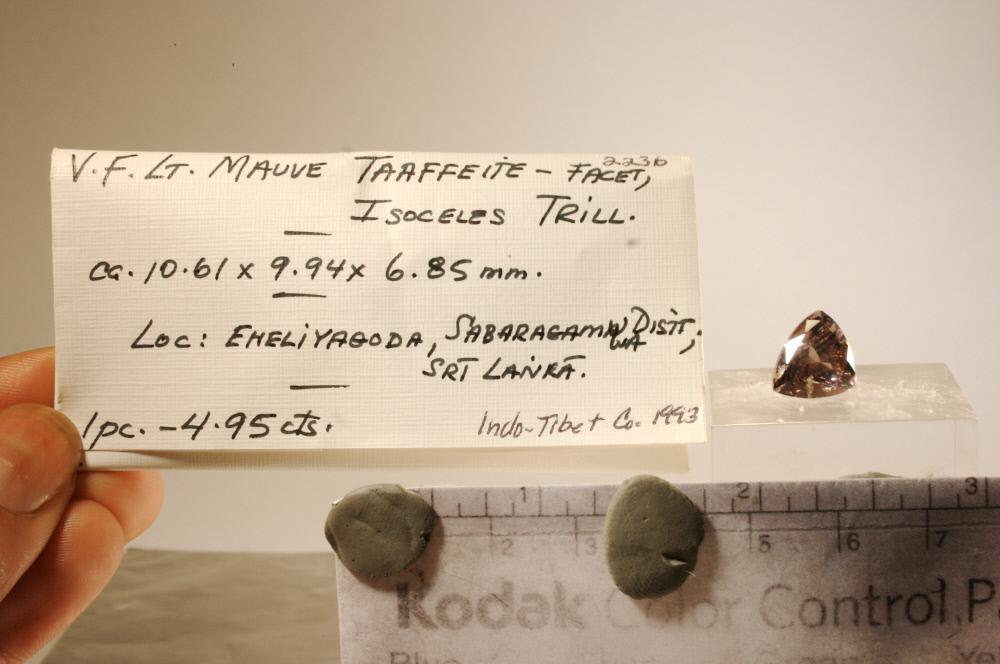 2236
V.F. LT. MAUVE TAAFFEITE - FACET,
ISOCELES TRILL.
ca. 10.61 x 9.94 x 6.85 mm.
LOC: EHELIYAGODA, SABARAGAMUWA DISTT,
SRI LANKA.
1 pc. - 4.95 cts.
Indo-Tibet Co. 1993
1 2 3
2 3 5 6 7
Kodak Color Control P